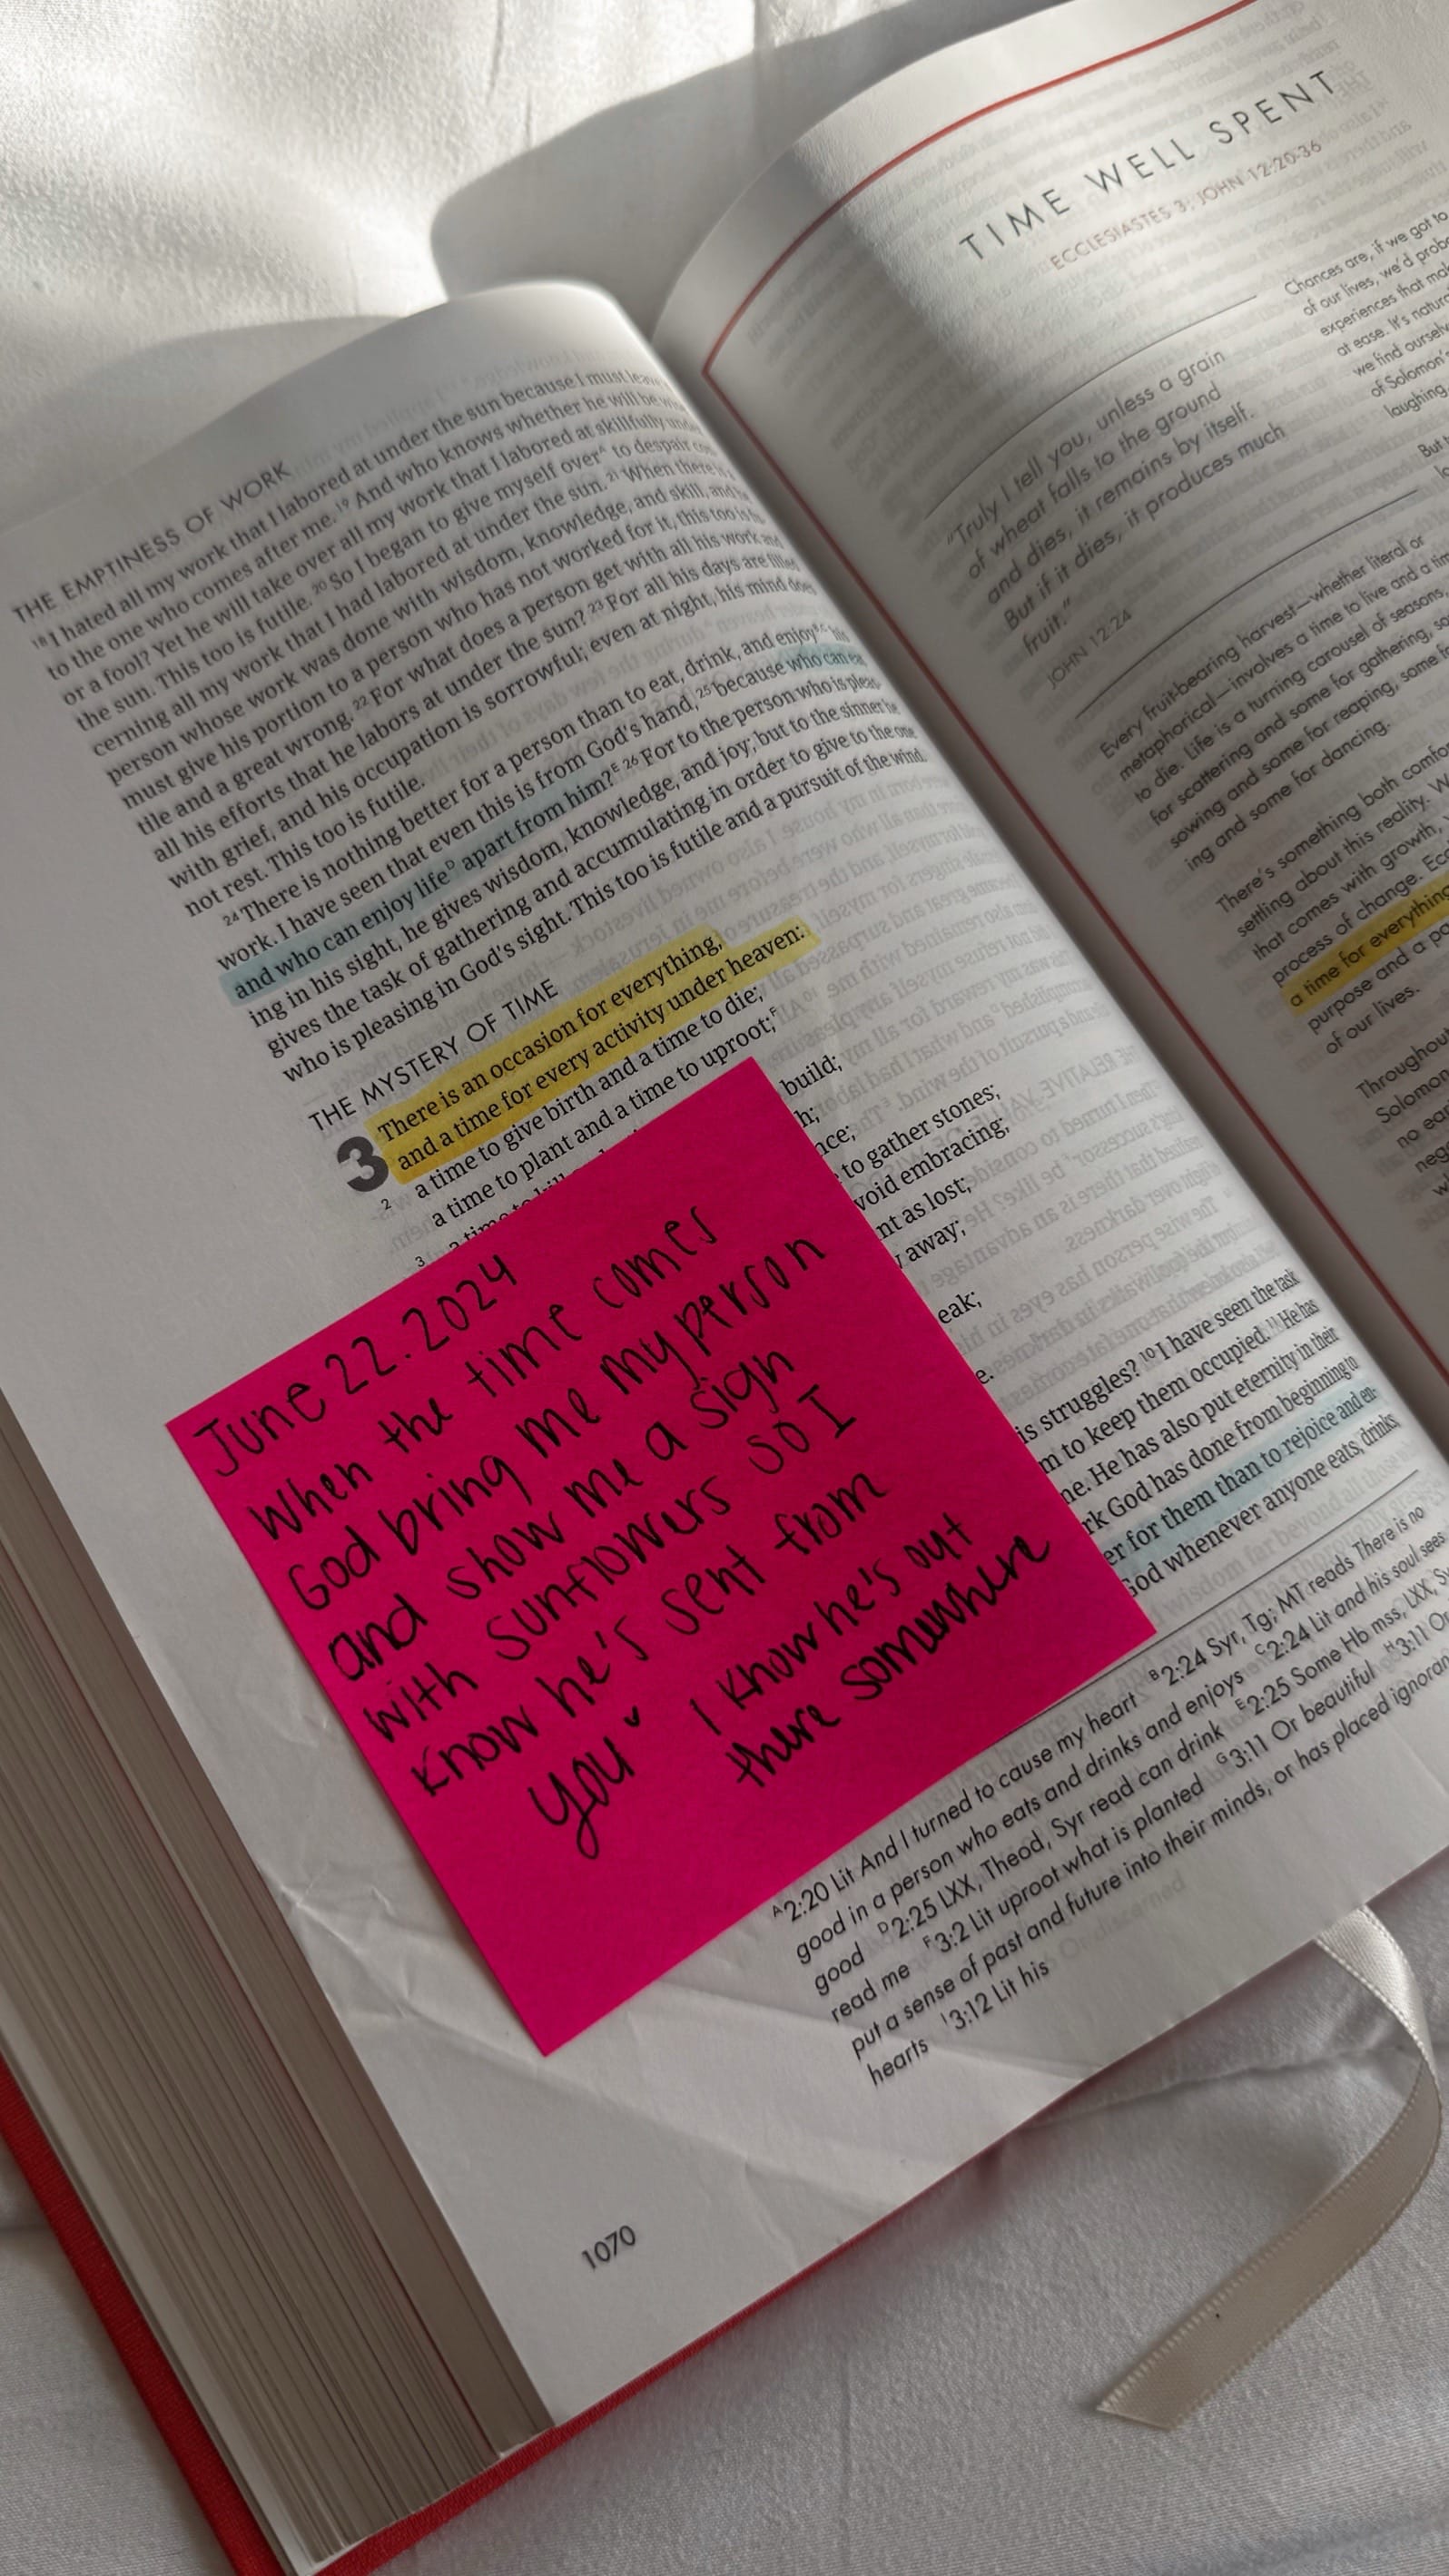 THE EMPTINESS OF WORK
18 I hated all my work that I labored at under the sun because I must leave
to the one who comes after me. 19 And who knows whether he will be
or a fool? Yet he will take over all my work that I labored at skillfully
the sun. This too is futile. 20 So I began to give myself over A to despair
cerning all my work that I had labored at under the sun. 21 When there is
person whose work was done with wisdom, knowledge, and skill, and
must give his portion to a person who has not worked for it, this too is fu-
tile and a great wrong. 22 For what does a person get with all his work and
all his efforts that he labors at under the sun? 23 For all his days are filled
with grief, and his occupation is sorrowful; even at night, his mind does
not rest. This too is futile.
24 There is nothing better for a person than to eat, drink, and enjoy his
work. I have seen that even this is from God's hand, 25 because who can eat
and who can enjoy life D apart from him? E 26 For to the person who is pleas-
ing in his sight, he gives wisdom, knowledge, and joy; but to the sinner he
gives the task of gathering and accumulating in order to give to the one
who is pleasing in God's sight. This too is futile and a pursuit of the wind.
THE MYSTERY OF TIME
3 There is an occasion for everything,
and a time for every activity under heaven:
2 a time to give birth and a time to die;
a time to plant and a time to uproot; F
3 a time to
build;
to gather stones;
void embracing;
nt as lost;
away;
eak;
is struggles? 10 I have seen the task
m to keep them occupied. 11 He has
me. He has also put eternity in their
rk God has done from beginning to
er for them than to rejoice and en-
God whenever anyone eats, drinks,
June 22. 2024
When the time comes
God bring me my person
and show me a sign
with sunflowers so I
know he's sent from
you
I know he's out
there somewhere
A 2:20 Lit And I turned to cause my heart B 2:24 Syr, Tg; MT reads There is no
good in a person who eats and drinks and enjoys C 2:24 Lit and his soul sees
good D 2:25 LXX, Theod, Syr read can drink E 2:25 Some Hb mss, LXX,
read me F 3:2 Lit uproot what is planted G 3:11 Or beautiful H 3:11 Or
put a sense of past and future into their minds, or has placed
hearts I 3:12 Lit his
1070
TIME WELL SPENT
ECCLESIASTES 3; JOHN 12:20-36
"Truly I tell you, unless a grain
of wheat falls to the ground
and dies, it remains by itself.
But if it dies, it produces much
fruit."
JOHN 12:24
Chances are, if we got to
of our lives, we'd
experiences that
at ease. It's
we find
of Solomon's
laughing,
But
Every fruit-bearing harvest—whether literal or
metaphorical—involves a time to live and a time
to die. Life is a turning carousel of seasons,
for scattering and some for gathering,
sowing and some for reaping, some
ing and some for dancing.
There's something both
settling about this reality.
that comes with growth,
process of change.
a time for everything
purpose and a
of our lives.
Solomon